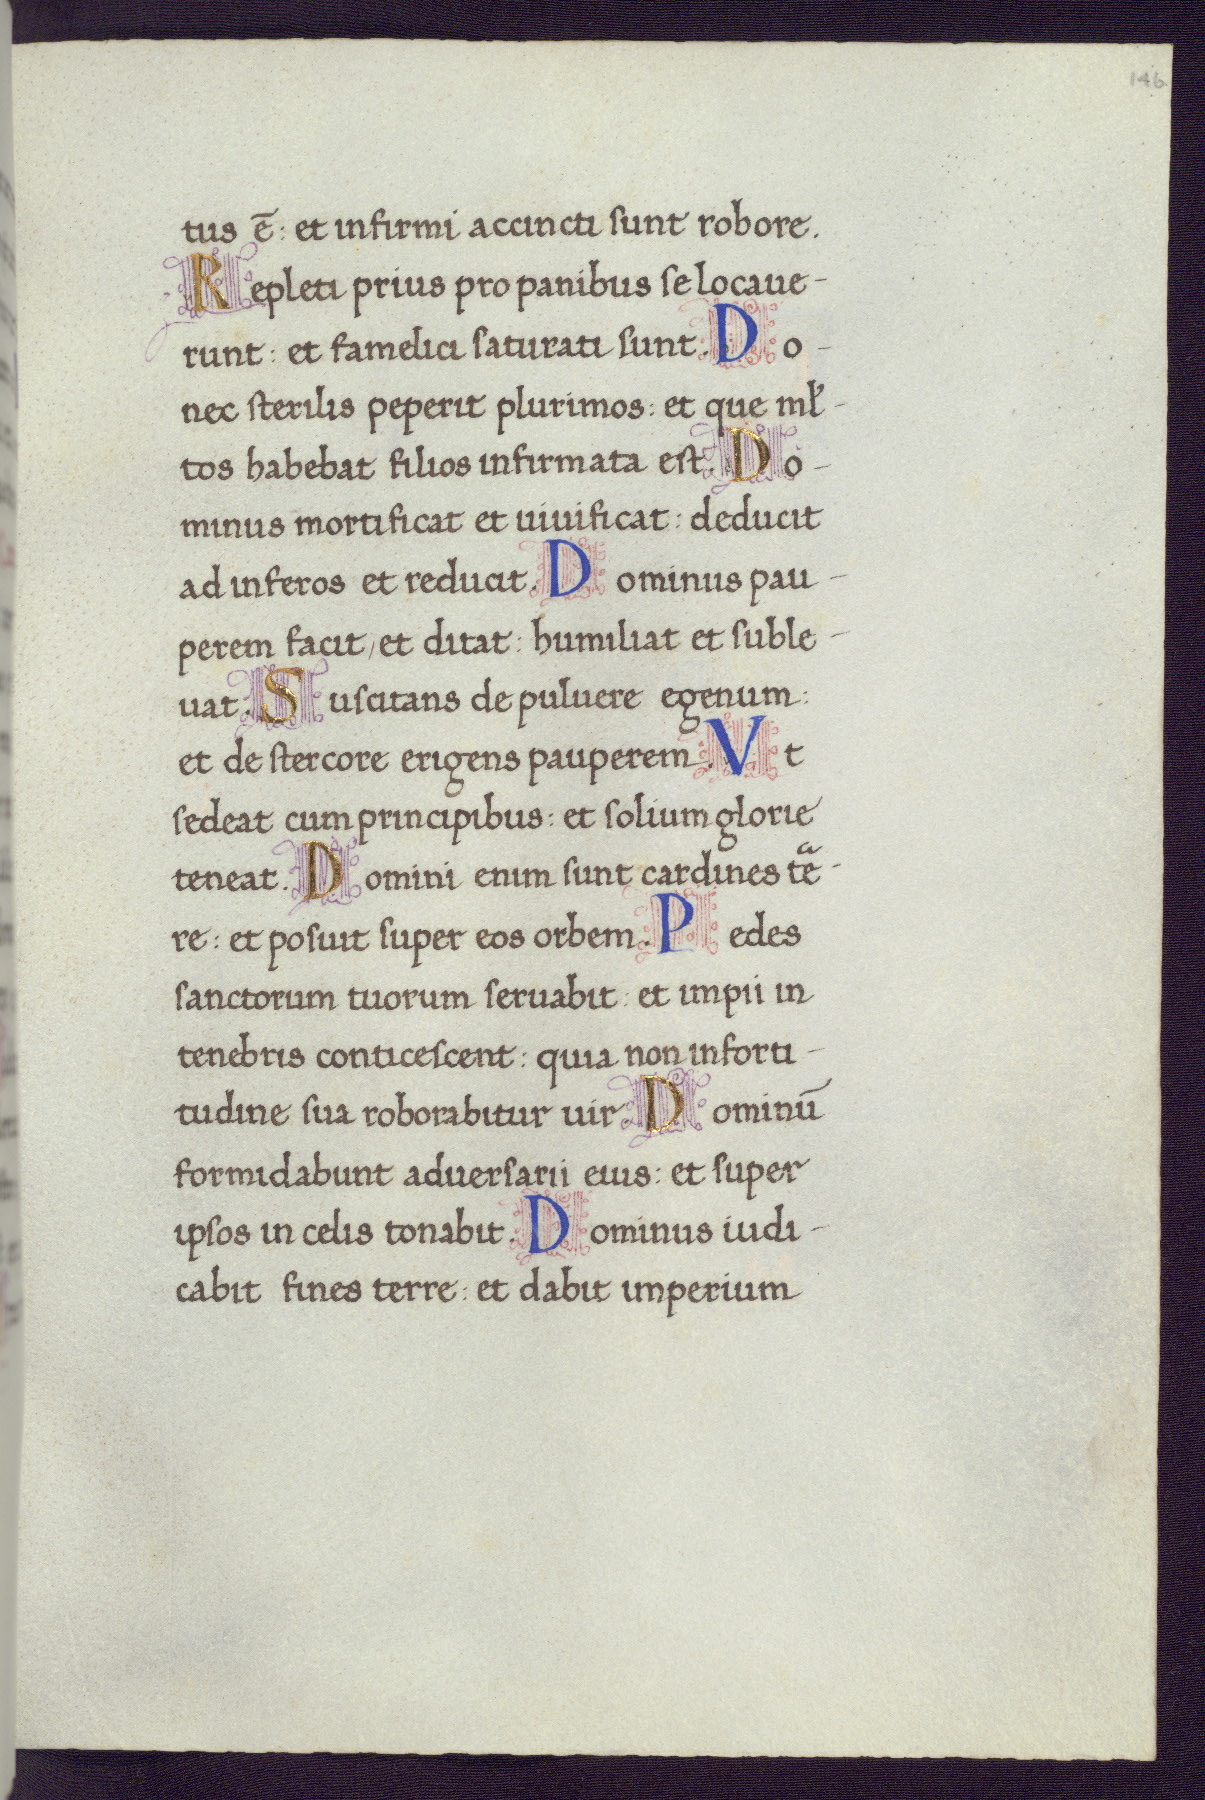 146
tus ē: et infirmi accincti sunt robore.
Repleti prius pro panibus se locaue-
runt: et famelici saturati sunt. Do-
nec sterilis peperit plurimos: et que ml̓-
tos habebat filios infirmata est. Do-
minus mortificat et uiuificat: deducit
ad inferos et reducit. Dominus pau-
perem facit, et ditat: humiliat et suble-
uat. Suscitans de puluere egenum:
et de stercore erigens pauperem. Vt
sedeat cum principibus: et solium glorie
teneat. Domini enim sunt cardines teᷓ-
re: et posuit super eos orbem. Pedes
sanctorum tuorum seruabit: et impii in
tenebris conticescent: quia non in forti-
tudine sua roborabitur uir. Dominū
formidabunt aduersarii eius: et super
ipsos in celis tonabit. Dominus iudi-
cabit fines terre: et dabit imperium